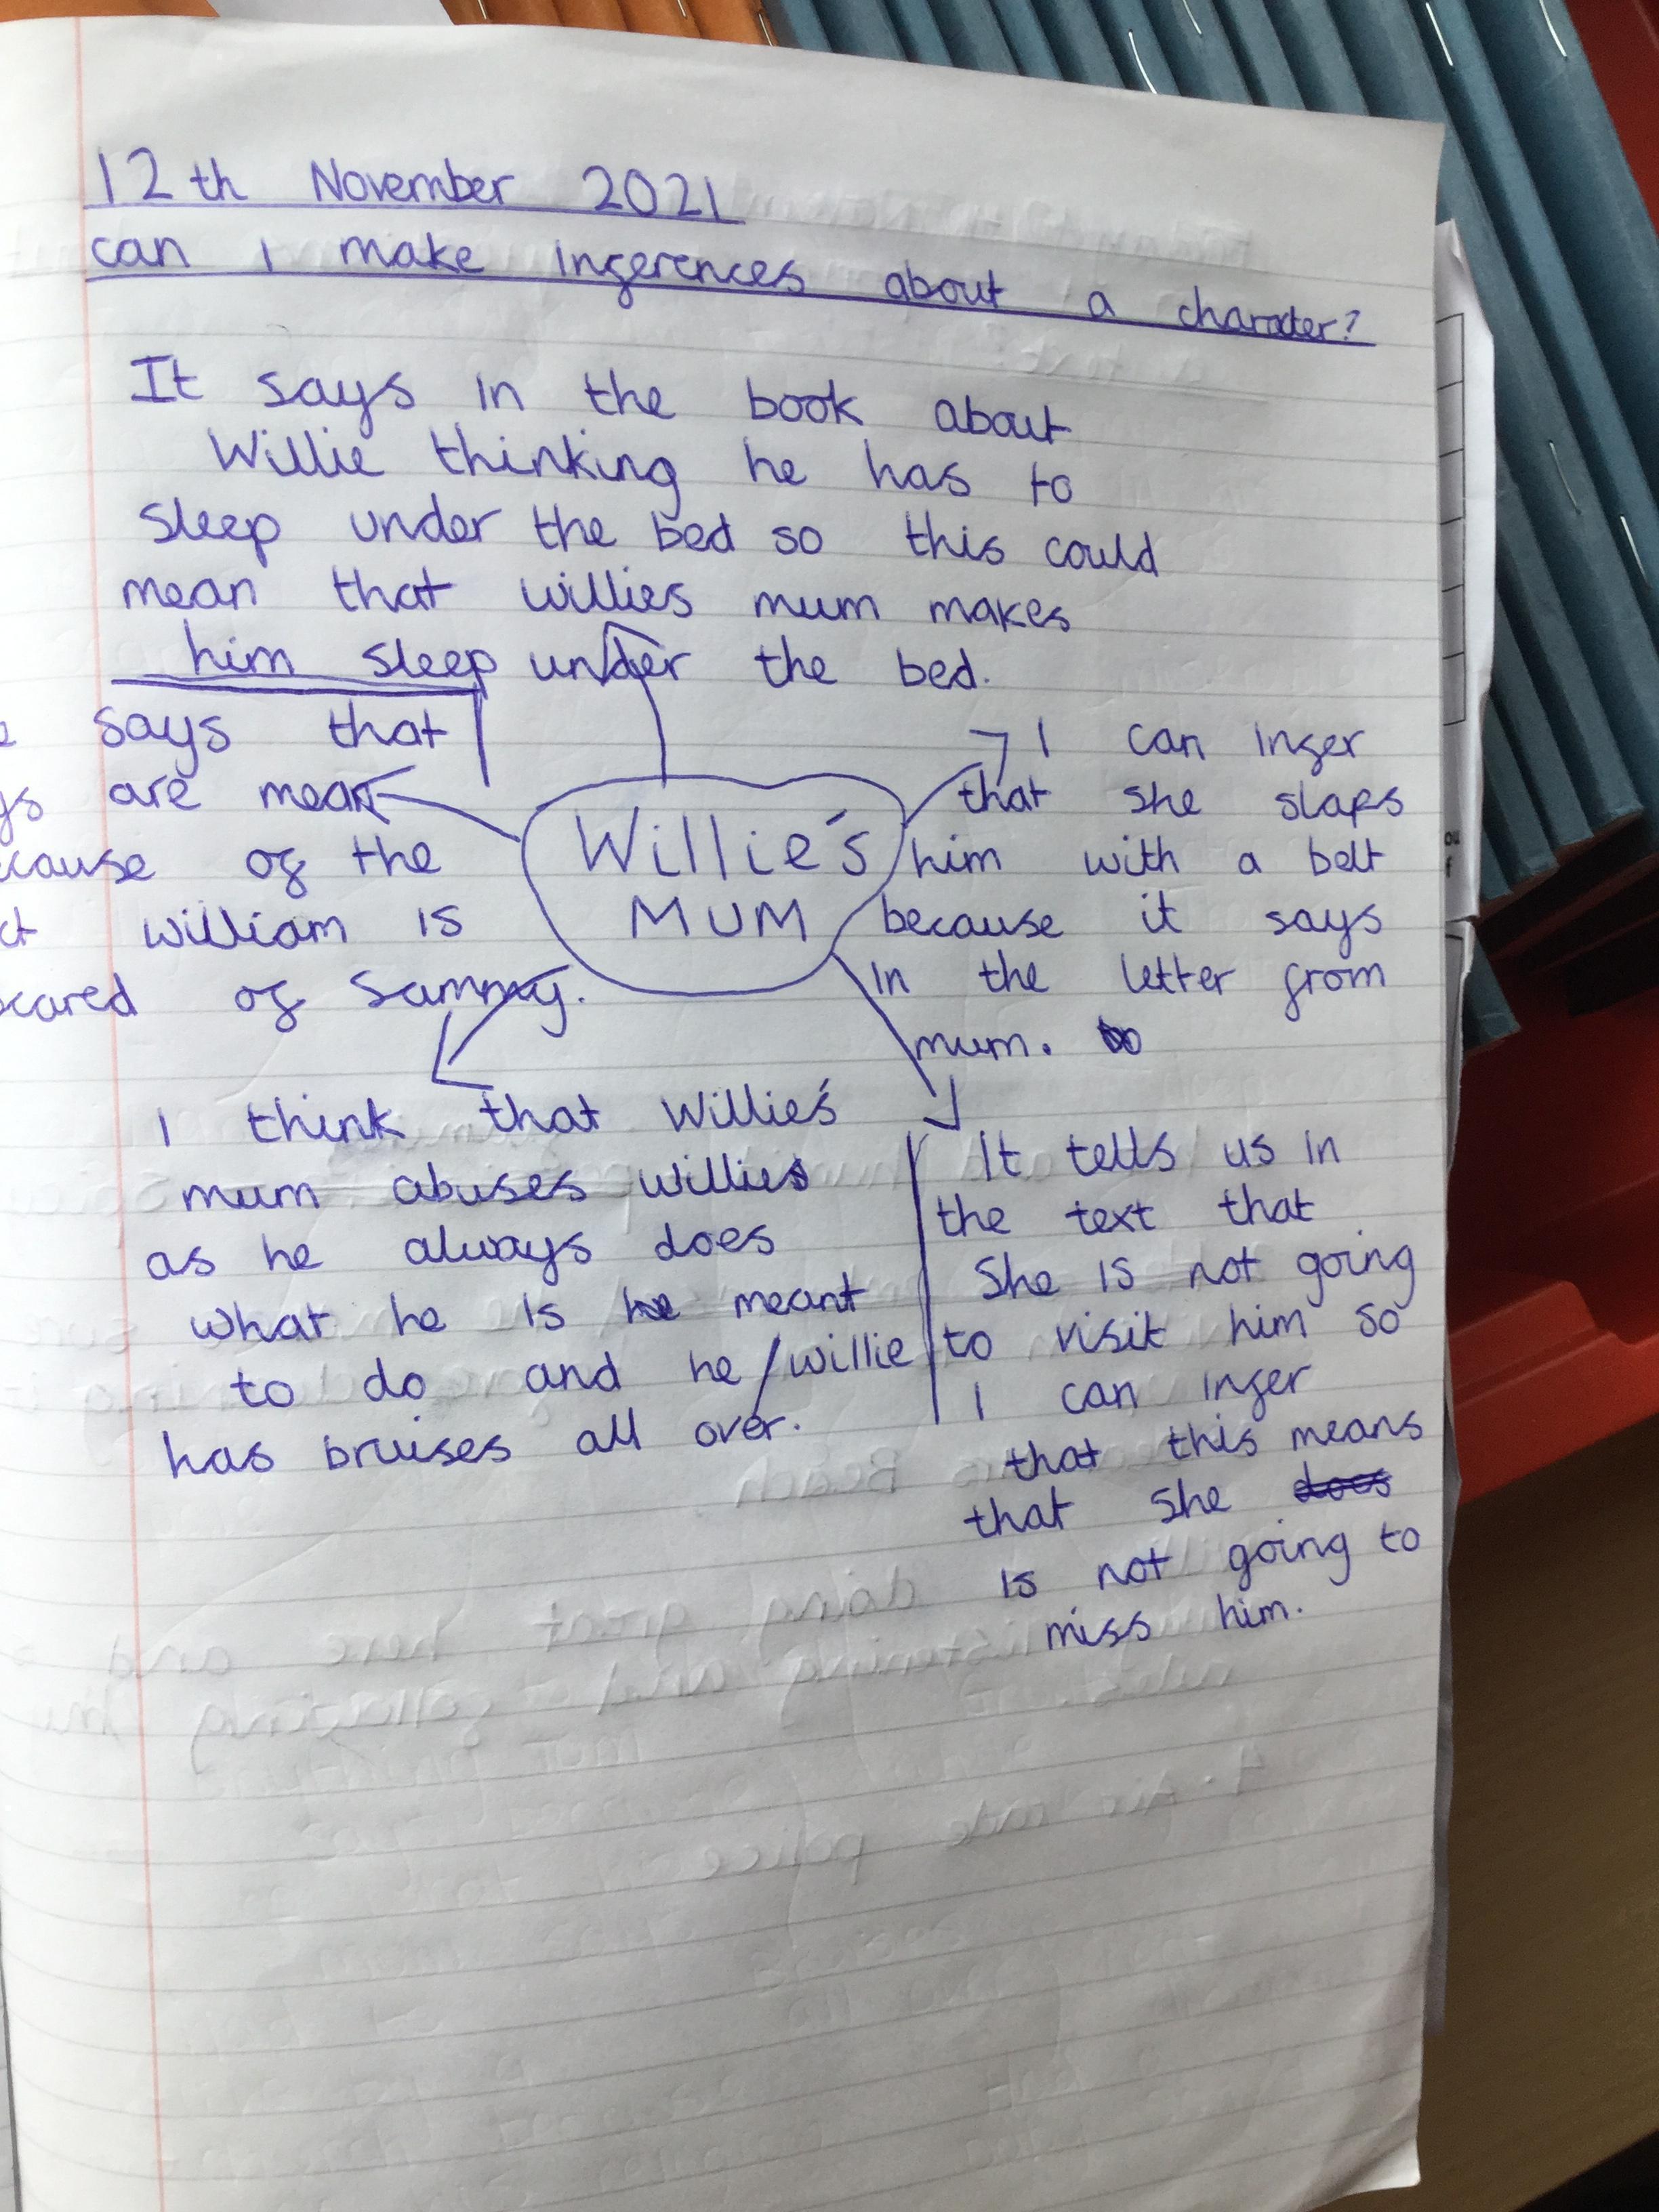 12th November 2021
can I make inferences about a character?
It says in the book about
Willie thinking he has to
sleep under the bed so this could
mean that willies mum makes
him sleep under the bed.
says that
are mean
cause of the
william is
scared of Sammy.
Willie's
MUM
I can infer
that she slaps
him with a belt
because it says
in the letter from
mum.
I think that Willie's
mum abuses willie
as he always does
what he is meant
to do and he/willie
has bruises all over.
It tells us in
the text that
She is not going
to visit him so
I can infer
that this means
that she does
is not going to
miss him.